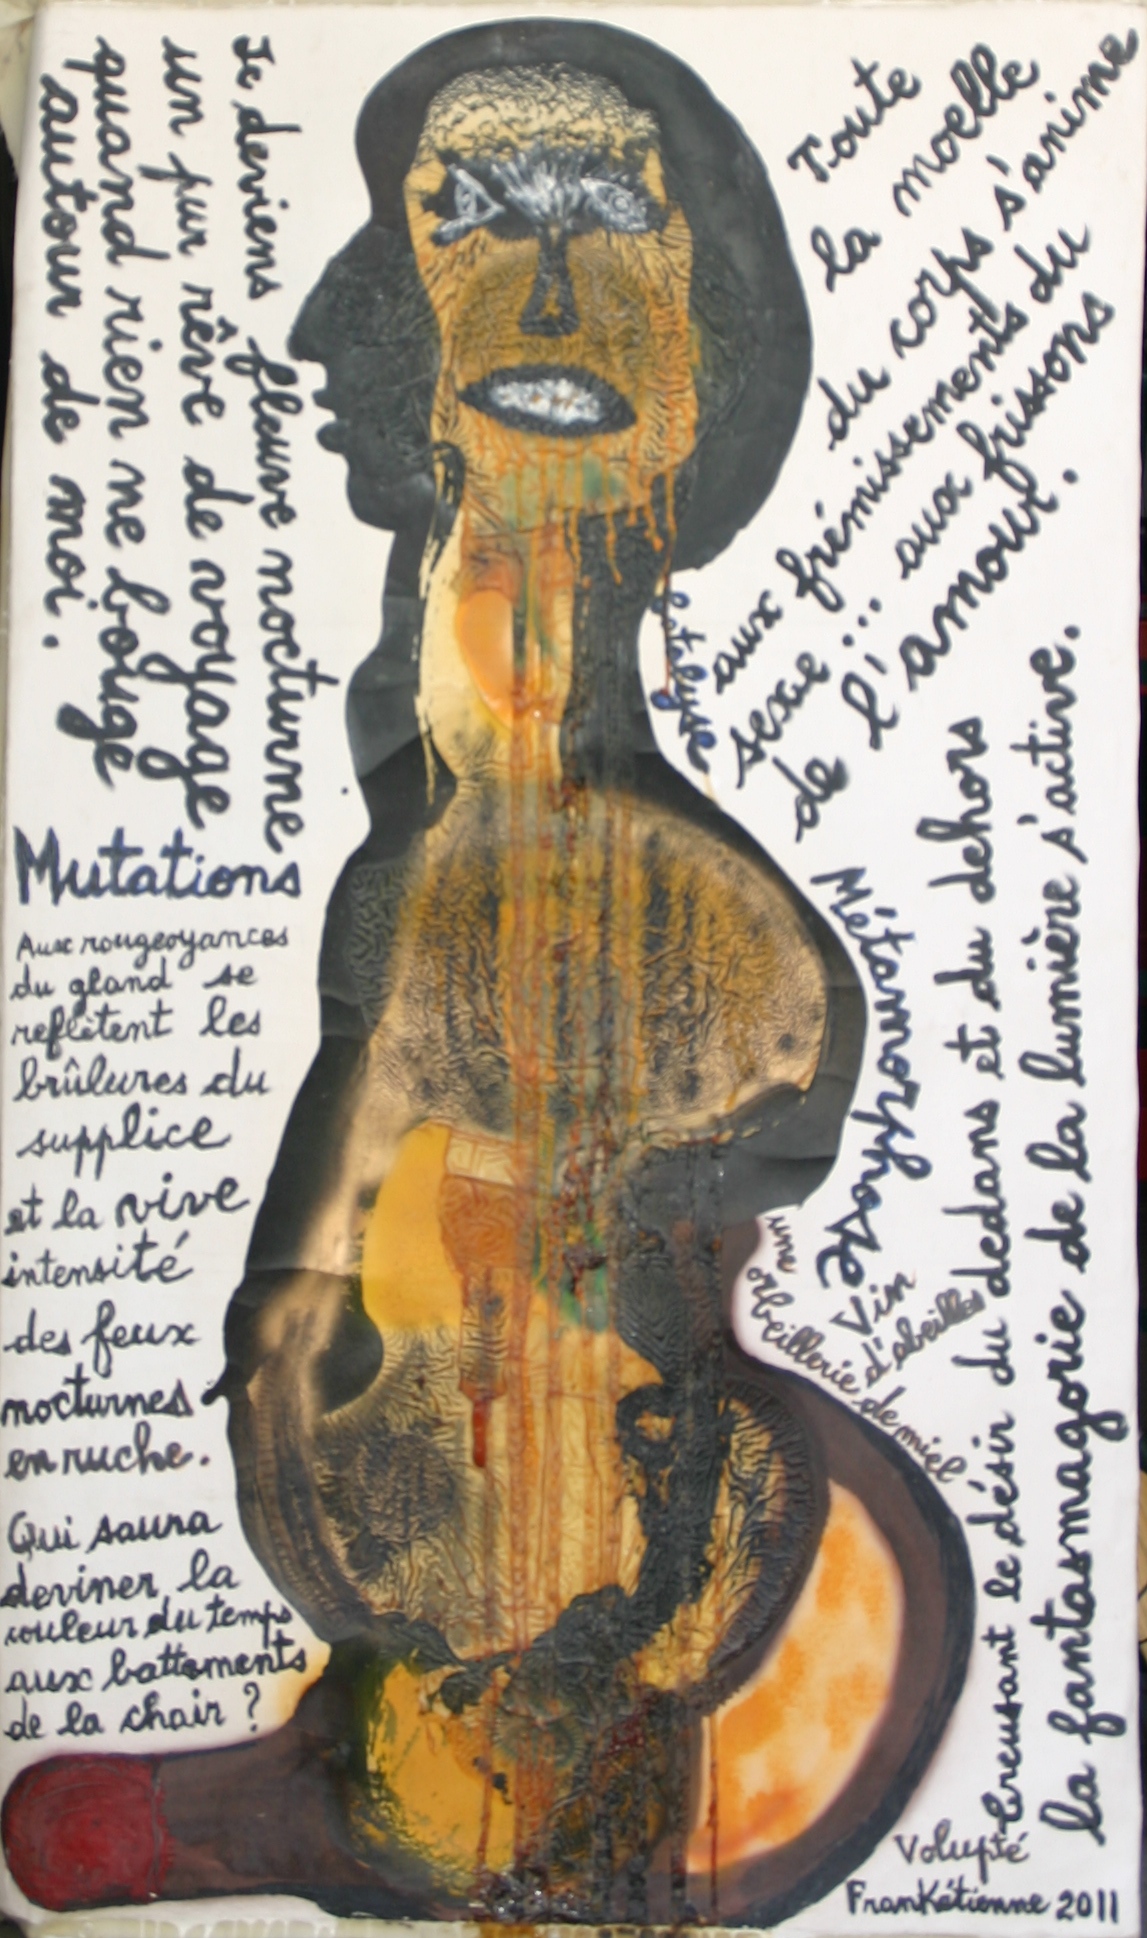 Je deviens fleuve nocturne
un pur rêve de voyage
quand rien ne bouge
autour de moi.
Mutations
Aux rougeoyances
du gland se
reflètent les
brûlures du
supplice
et la vive
intensité
des feux
nocturnes
en ruche.
Qui saura
deviner la
couleur du temps
aux battements
de la chair ?
Toute
la moelle
du corps s'anime
aux frémissements du
sexe ... aux frissons
de l'amour.
Catalyse
Métamorphose
Vin
d'abeilles
une
orbeillerie de miel
Creusant le désir du dedans et du dehors
la fantasmagorie de la lumière s'active.
Volupté
Frankétienne 2011